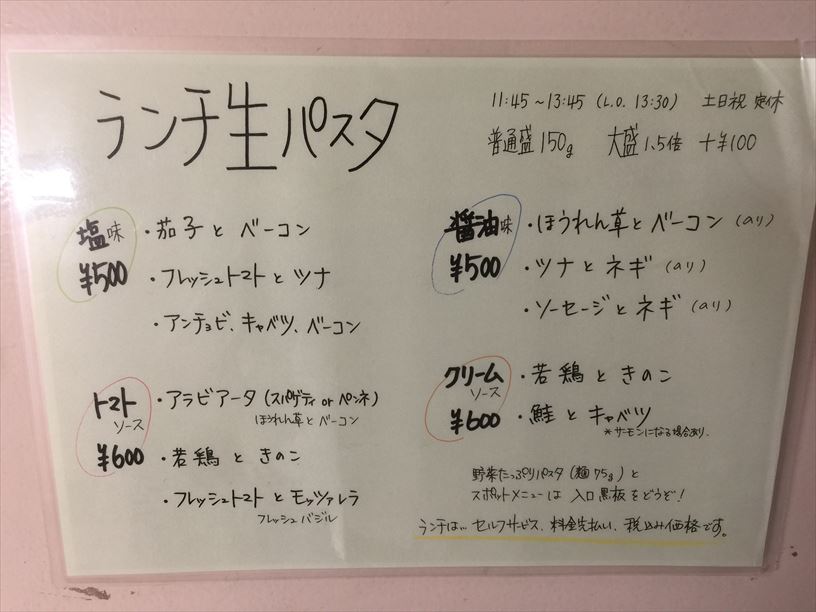 ランチ生パスタ
11:45～13:45 (L.O. 13:30) 土日祝 定休
普通盛150g 大盛1.5倍 +¥100
塩味
¥500
・茄子とベーコン
・フレッシュトマトとツナ
・アンチョビ、キャベツ、ベーコン
醤油味
¥500
・ほうれん草とベーコン (のり)
・ツナとネギ (のり)
・ソーセージとネギ (のり)
トマト
ソース
¥600
・アラビアータ (スパゲティ or ペンネ)
ほうれん草とベーコン
・若鶏ときのこ
・フレッシュトマトとモッツァレラ
フレッシュバジル
クリーム
ソース
¥600
・若鶏ときのこ
・鮭とキャベツ
*サーモンになる場合あり.
野菜たっぷりパスタ (麺75g) と
スポットメニューは 入口黒板をどうぞ!
ランチは… セルフサービス、料金先払い、税込み価格です。